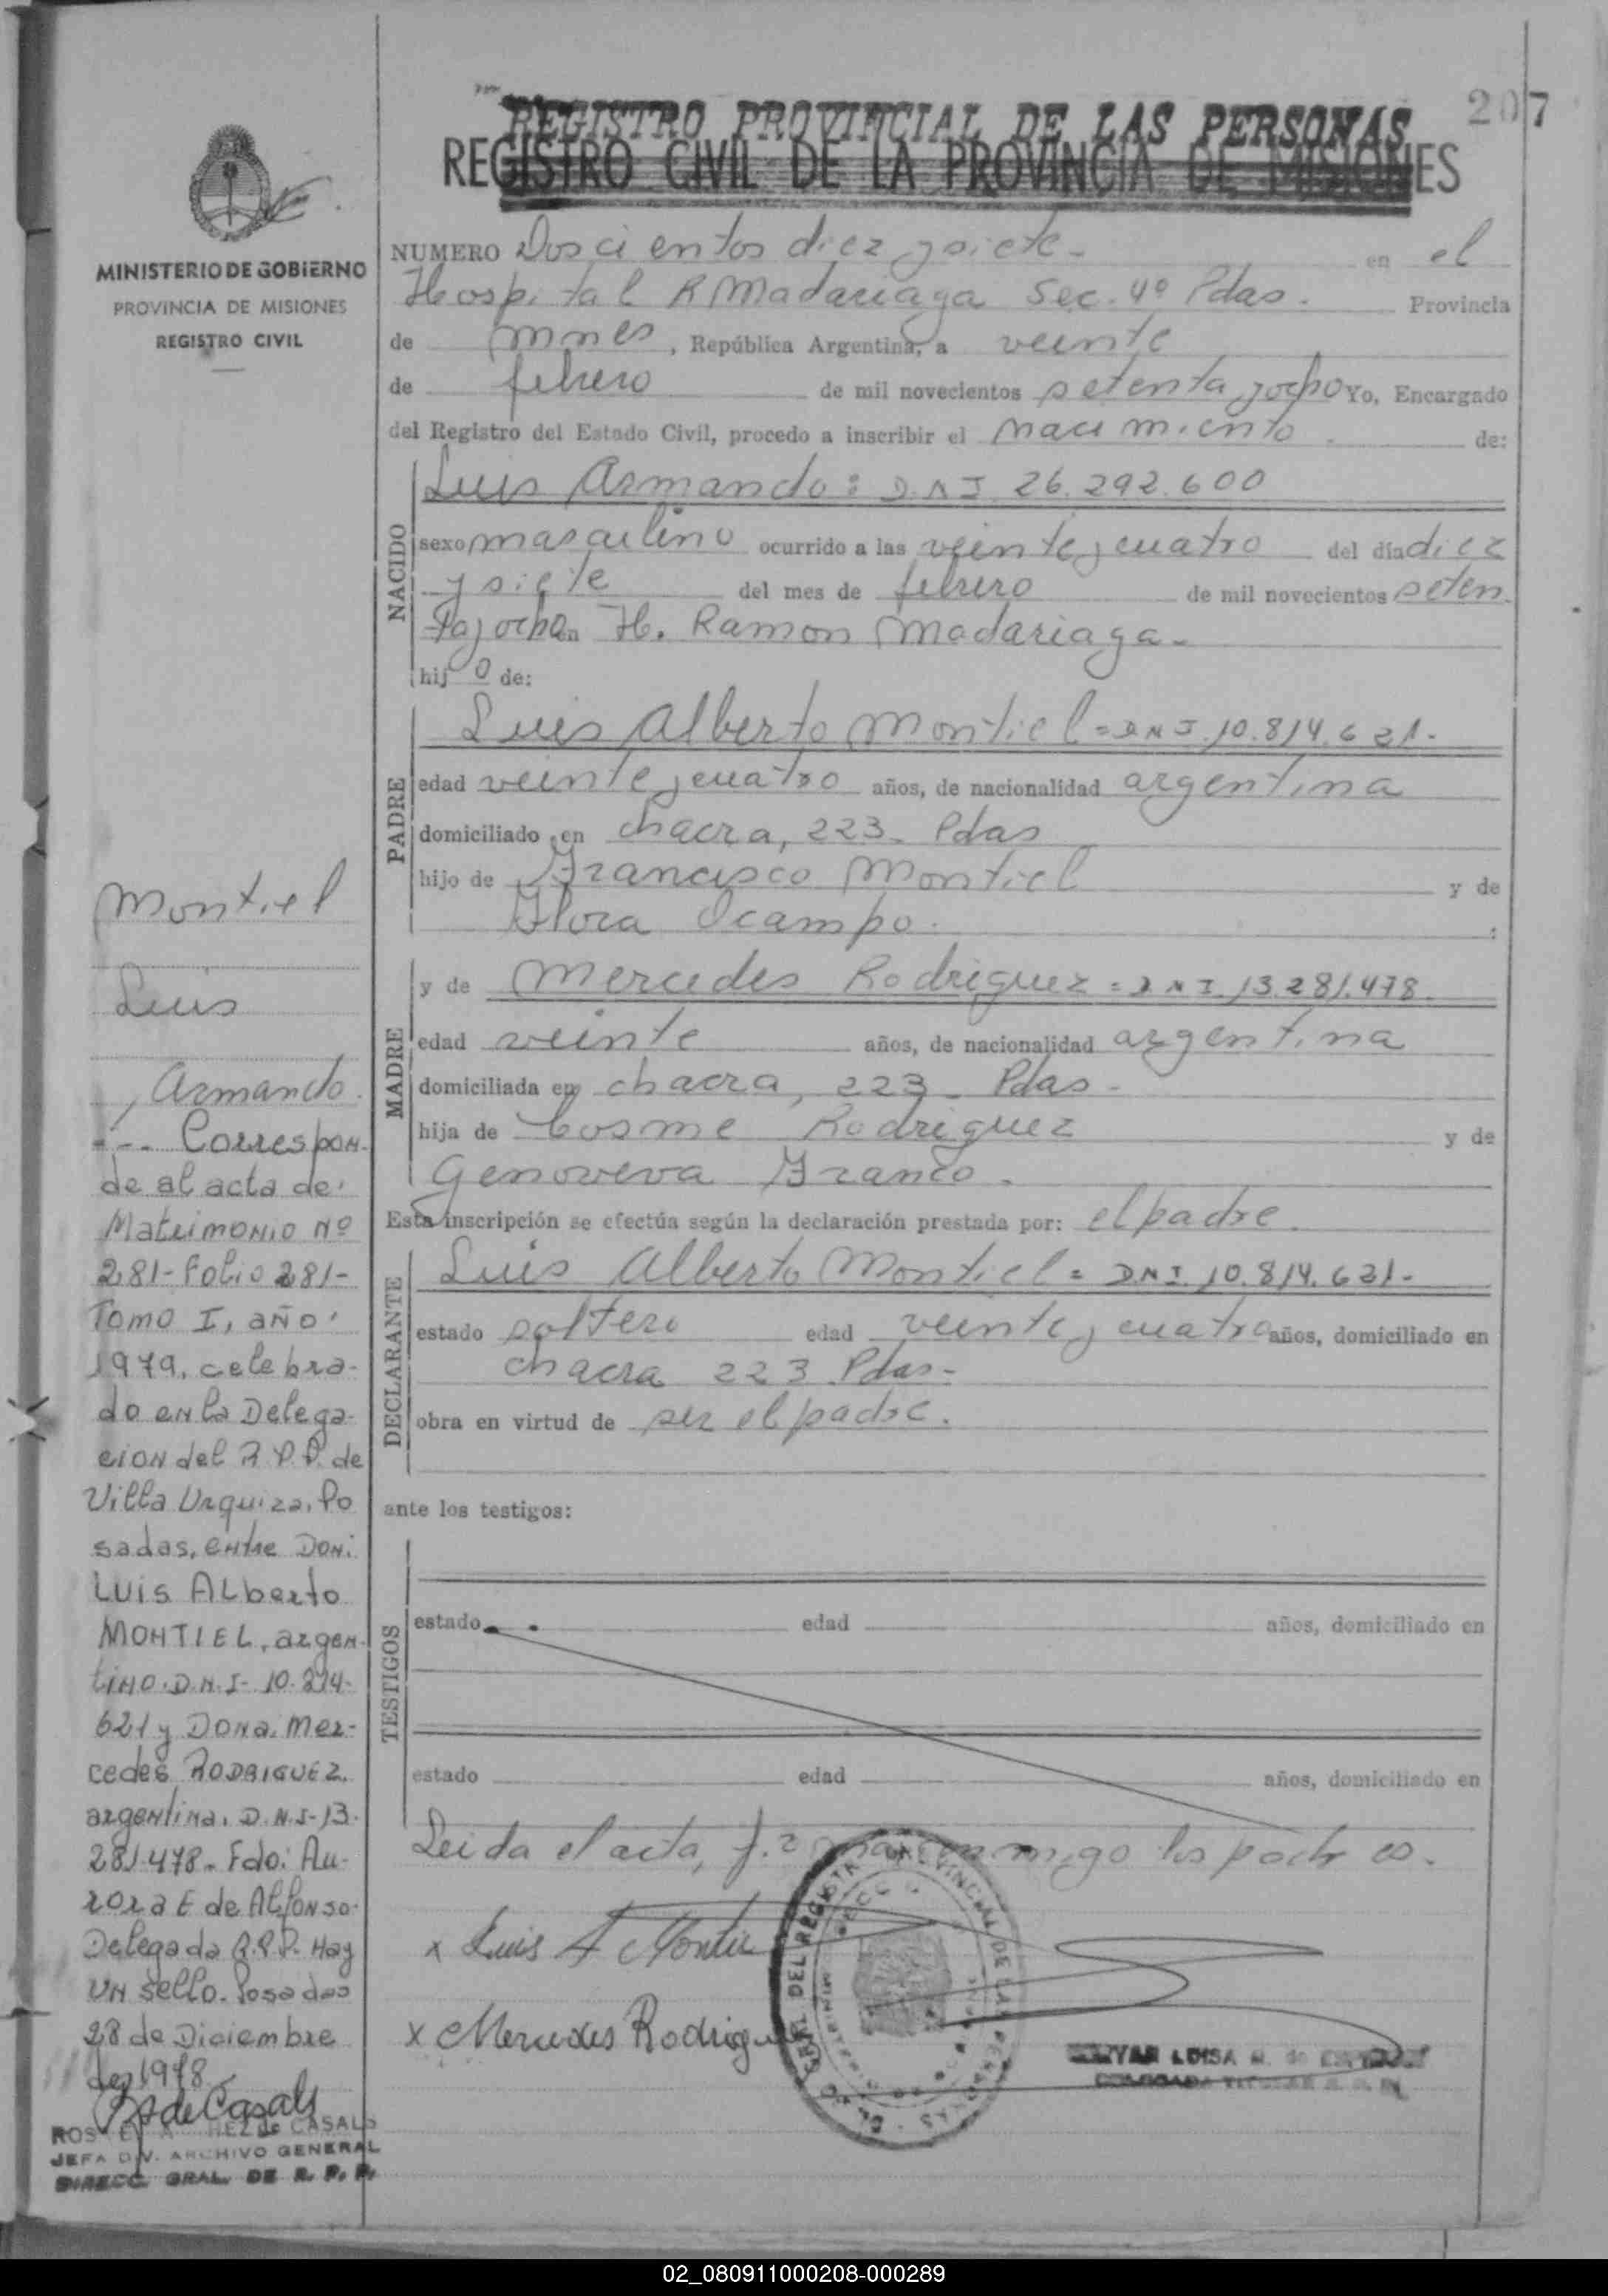 207
REGISTRO PROVINCIAL DE LAS PERSONAS
REGISTRO CIVIL DE LA PROVINCIA DE MISIONES
MINISTERIO DE GOBIERNO
PROVINCIA DE MISIONES
REGISTRO CIVIL
NUMERO Doscientos diez y siete - en el
Hospital R Madariaga Sec. 4º Pdas. Provincia
de Mnes, República Argentina, a veinte
de febrero de mil novecientos setenta y ocho Yo, Encargado
del Registro del Estado Civil, procedo a inscribir el nacimiento de:
NACIDO
Luis Armando: D.N.I 26.292.600
sexo masculino ocurrido a las veinte y cuatro del día diez
y siete del mes de febrero de mil novecientos seten
ta y ocho en H. Ramon Madariaga -
hijo de:
PADRE
Luis Alberto Montiel = D.N.I. 10.814.621.-
edad veinte y cuatro años, de nacionalidad argentina
domiciliado en chacra, 223 - Pdas
hijo de Francisco Montiel y de
Flora Ocampo.
MADRE
y de Mercedes Rodriguez = D.N.I. 13.281.478.
edad veinte años, de nacionalidad argentina
domiciliada en chacra, 223 - Pdas -
hija de Cosme Rodriguez y de
Genoveva Franco.
Esta inscripción se efectúa según la declaración prestada por: el padre.
DECLARANTE
Luis Alberto Montiel = D.N.I. 10.814.621.-
estado soltero edad veinte y cuatro años, domiciliado en
chacra 223 Pdas -
obra en virtud de ser el padre.
ante los testigos:
TESTIGOS
estado edad años, domiciliado en
estado edad años, domiciliado en
Leida el acta, firman conmigo los padres.
x Luis A Montiel
x Mercedes Rodriguez
Montiel
Luis
Armando.
- - - Correspon-
de al acta de
Matrimonio Nº
281 - Folio 281 -
Tomo I, año
1979, celebra-
do en la Delega-
cion del R.P.P. de
Villa Urquiza, Po
sadas, entre Don:
Luis Alberto
MONTIEL, argen-
tino. D.N.I - 10.814-
621 y Doña. Mer-
cedes RODRIGUEZ.
argentina. D.N.I - 13.
281.478. Fdo: Au-
rora E de Alfonso.
Delegada R.P.P. Hay
un sello. Posadas
28 de Diciembre
de 1978
de Casals
de CASALS
JEFA DIV. ARCHIVO GENERAL
DIRECC. GRAL. DE R. P. P.
LUISA
DELEGADA TITULAR
02_080911000208-000289